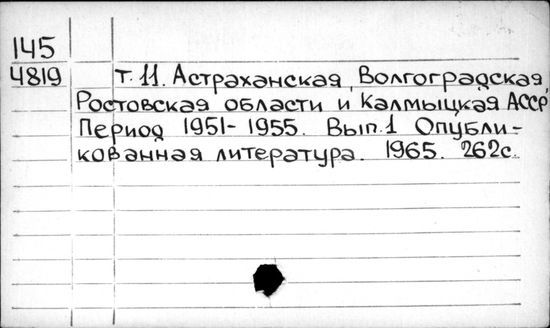 145
4819 т. 11. Астраханская, Волгоградская,
Ростовская области и Калмыцкая АССР
Период 1951-1955. Вып.1 Опубли-
кованная литература. 1965. 262с.